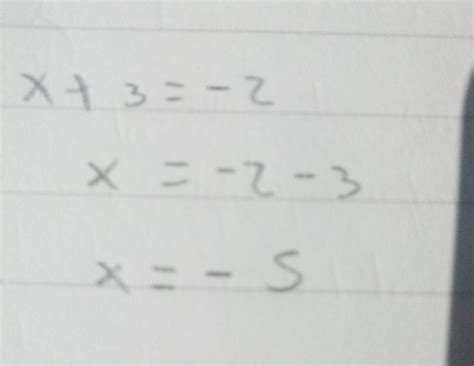 x + 3 = - 2
x = - 2 - 3
x = - 5